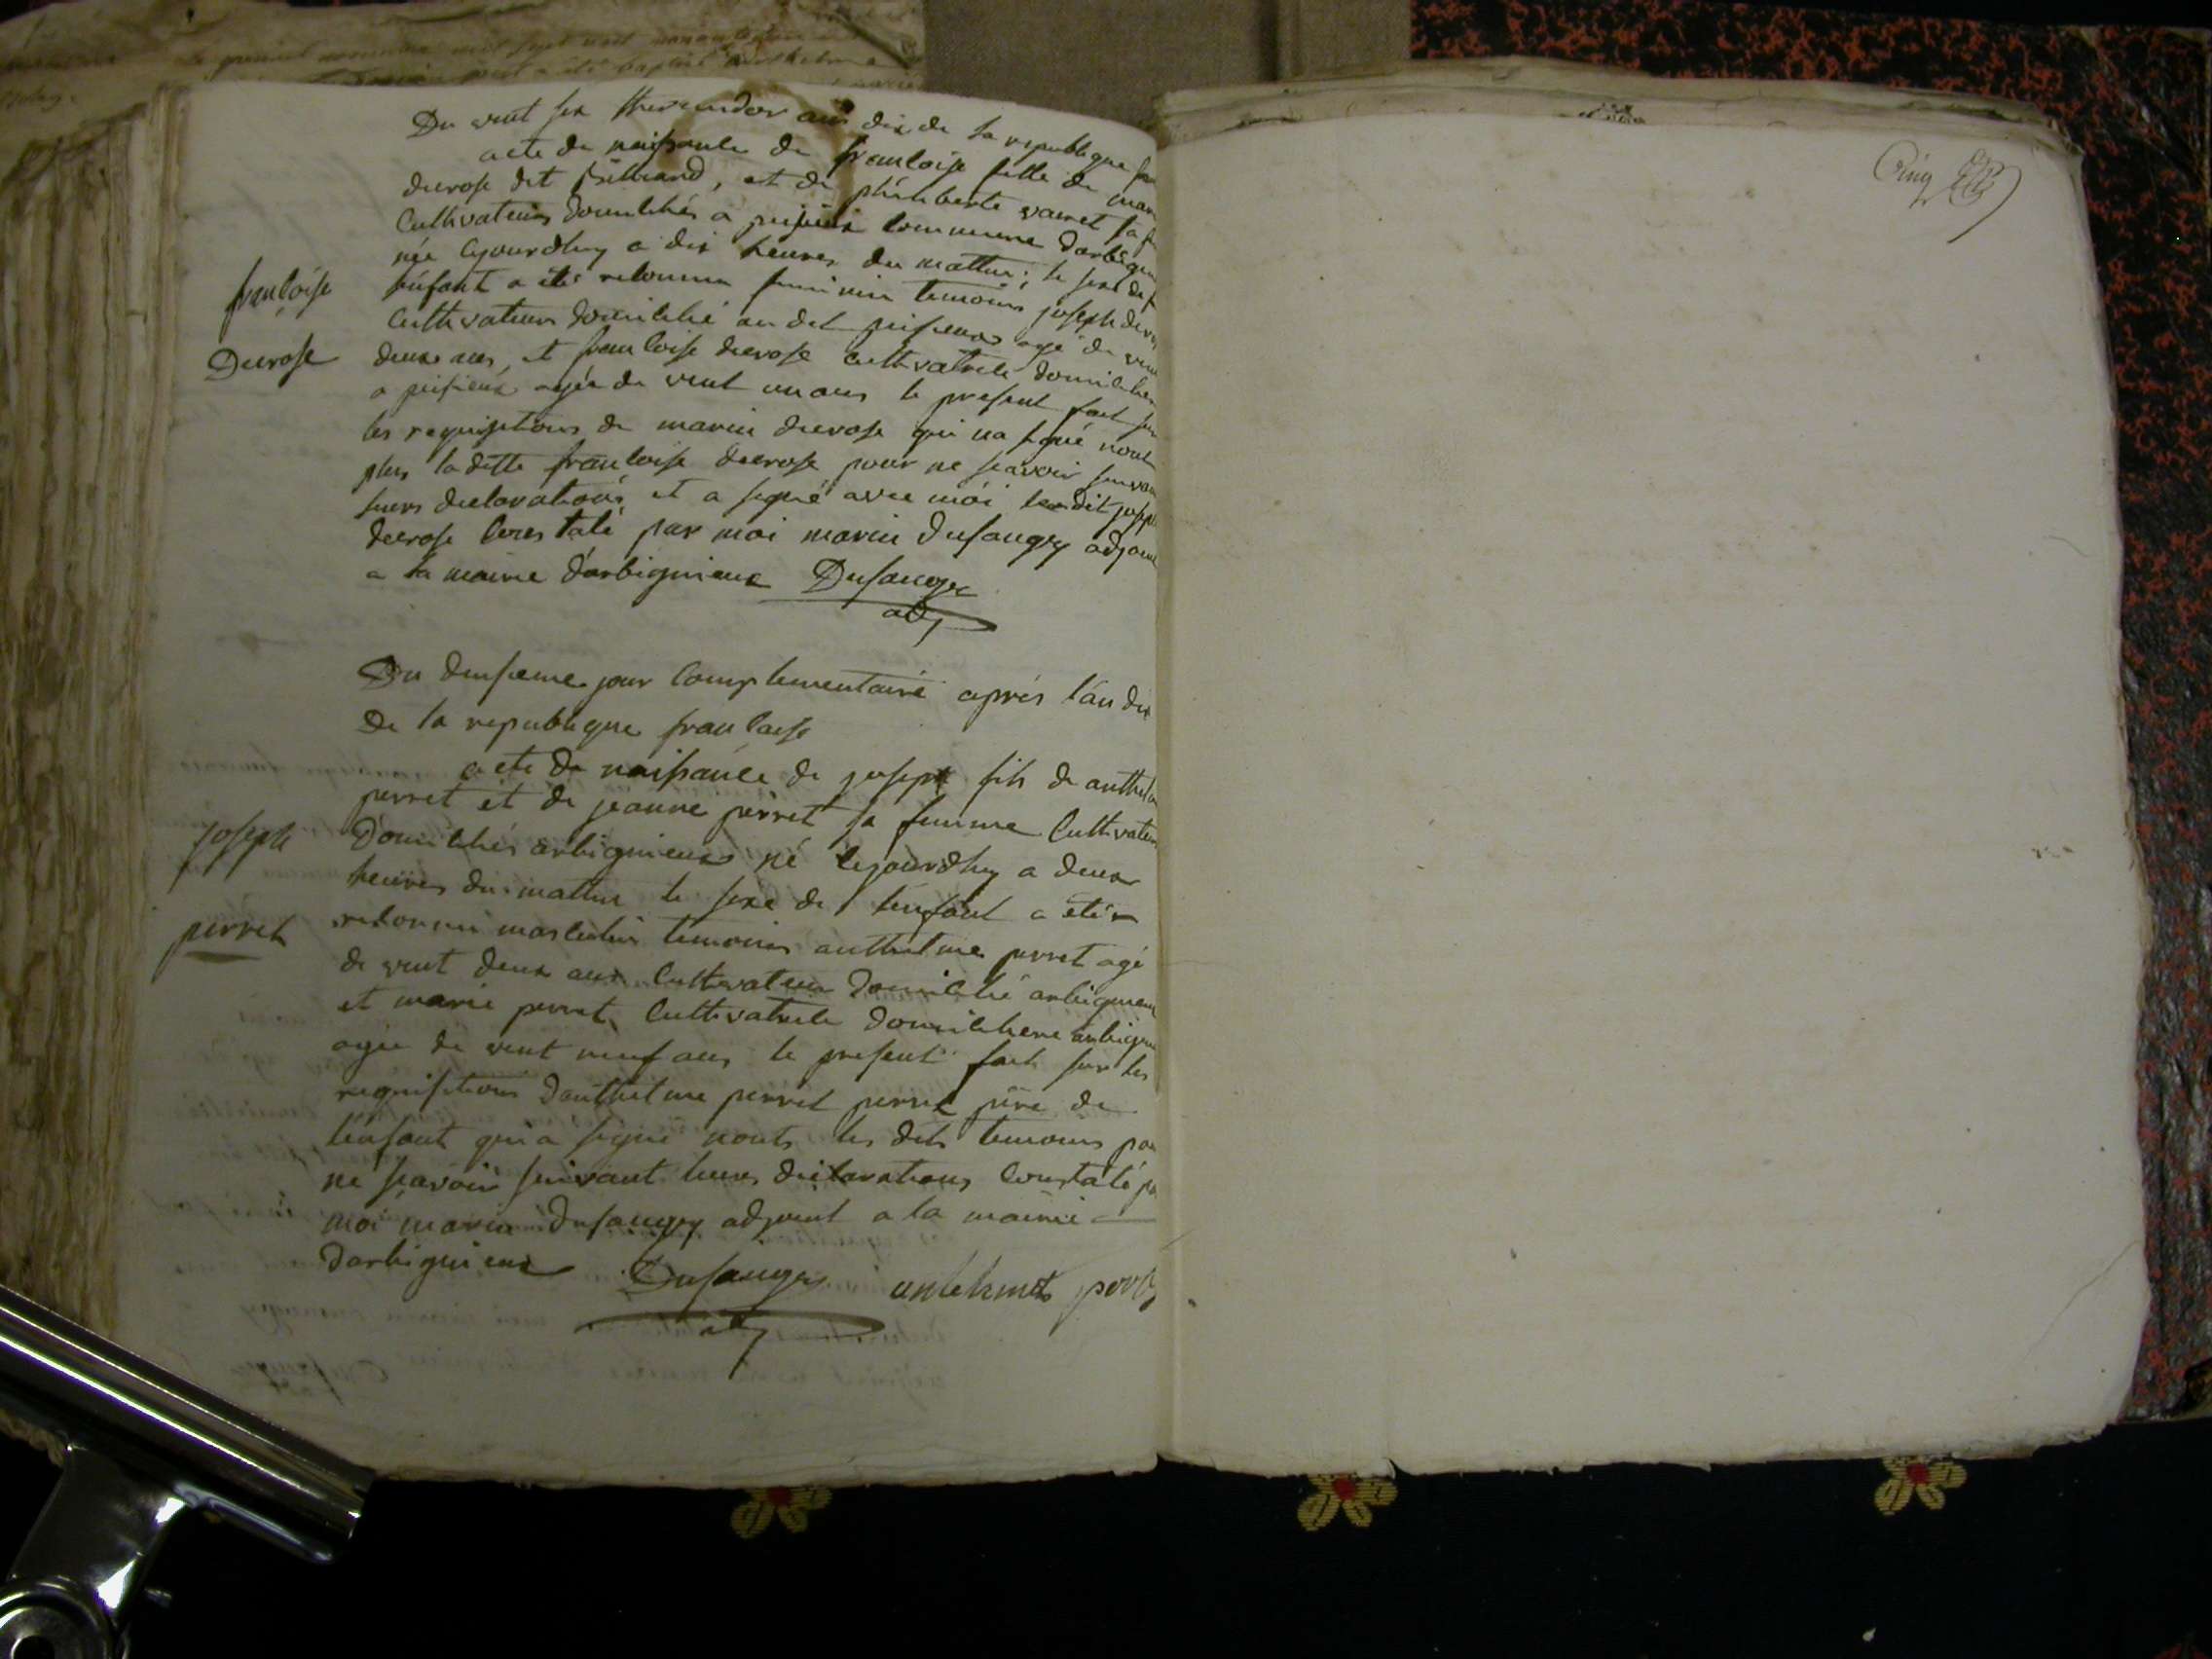 Du vent six thermidor an dix de la republique
acte de naissance de francoise fille de
decrose dit , et de philiberte varret sa
Cultivateurs domiciliés a peisieux commune darbign
née cejourdhuy a dix heures du mattin; le sexe de
lenfant a été reconnu feminin temoins joseph
Cultivateur domicilié au dit peisieux agé de
deux ans, et francoise decrose cultivatrice domicilie
a peisieux agée de vent un ans le present fait sur
les requisitions de marin decrose qui na signé nont
plus laditte francoise decrose pour ne scavoir
leurs declarations et a signé avec moi ledit
decrose Constaté par moi marin Dusaugey adjoin
a la mairie darbignieux Dusaugey
adj
francoise
Decrose
Du deusieme jour Complementaire après lan dix
De la republique francaise
acte de naissance de joseph fils de
perret et de jeanne perret sa femme Cultivateurs
Domiciliés arbignieux né cejourdhuy a deux
heures du mattin le sexe de lenfant a été
reconnu masculin temoins anthelme perret agé
de vent deux ans Cultivateur domicilié arbignieux
et marie perret Cultivatrice domiciliere
agée de vent neuf ans le present fait sur les
requisitions danthelme perret perret père de
lenfant qui a signé nonts les dits temoins
ne scavoir suivant leurs declarations Constaté
moi marin Dusaugey adjoint a la mairie
darbignieux Dusaugey
adj
joseph
perret
Cinq